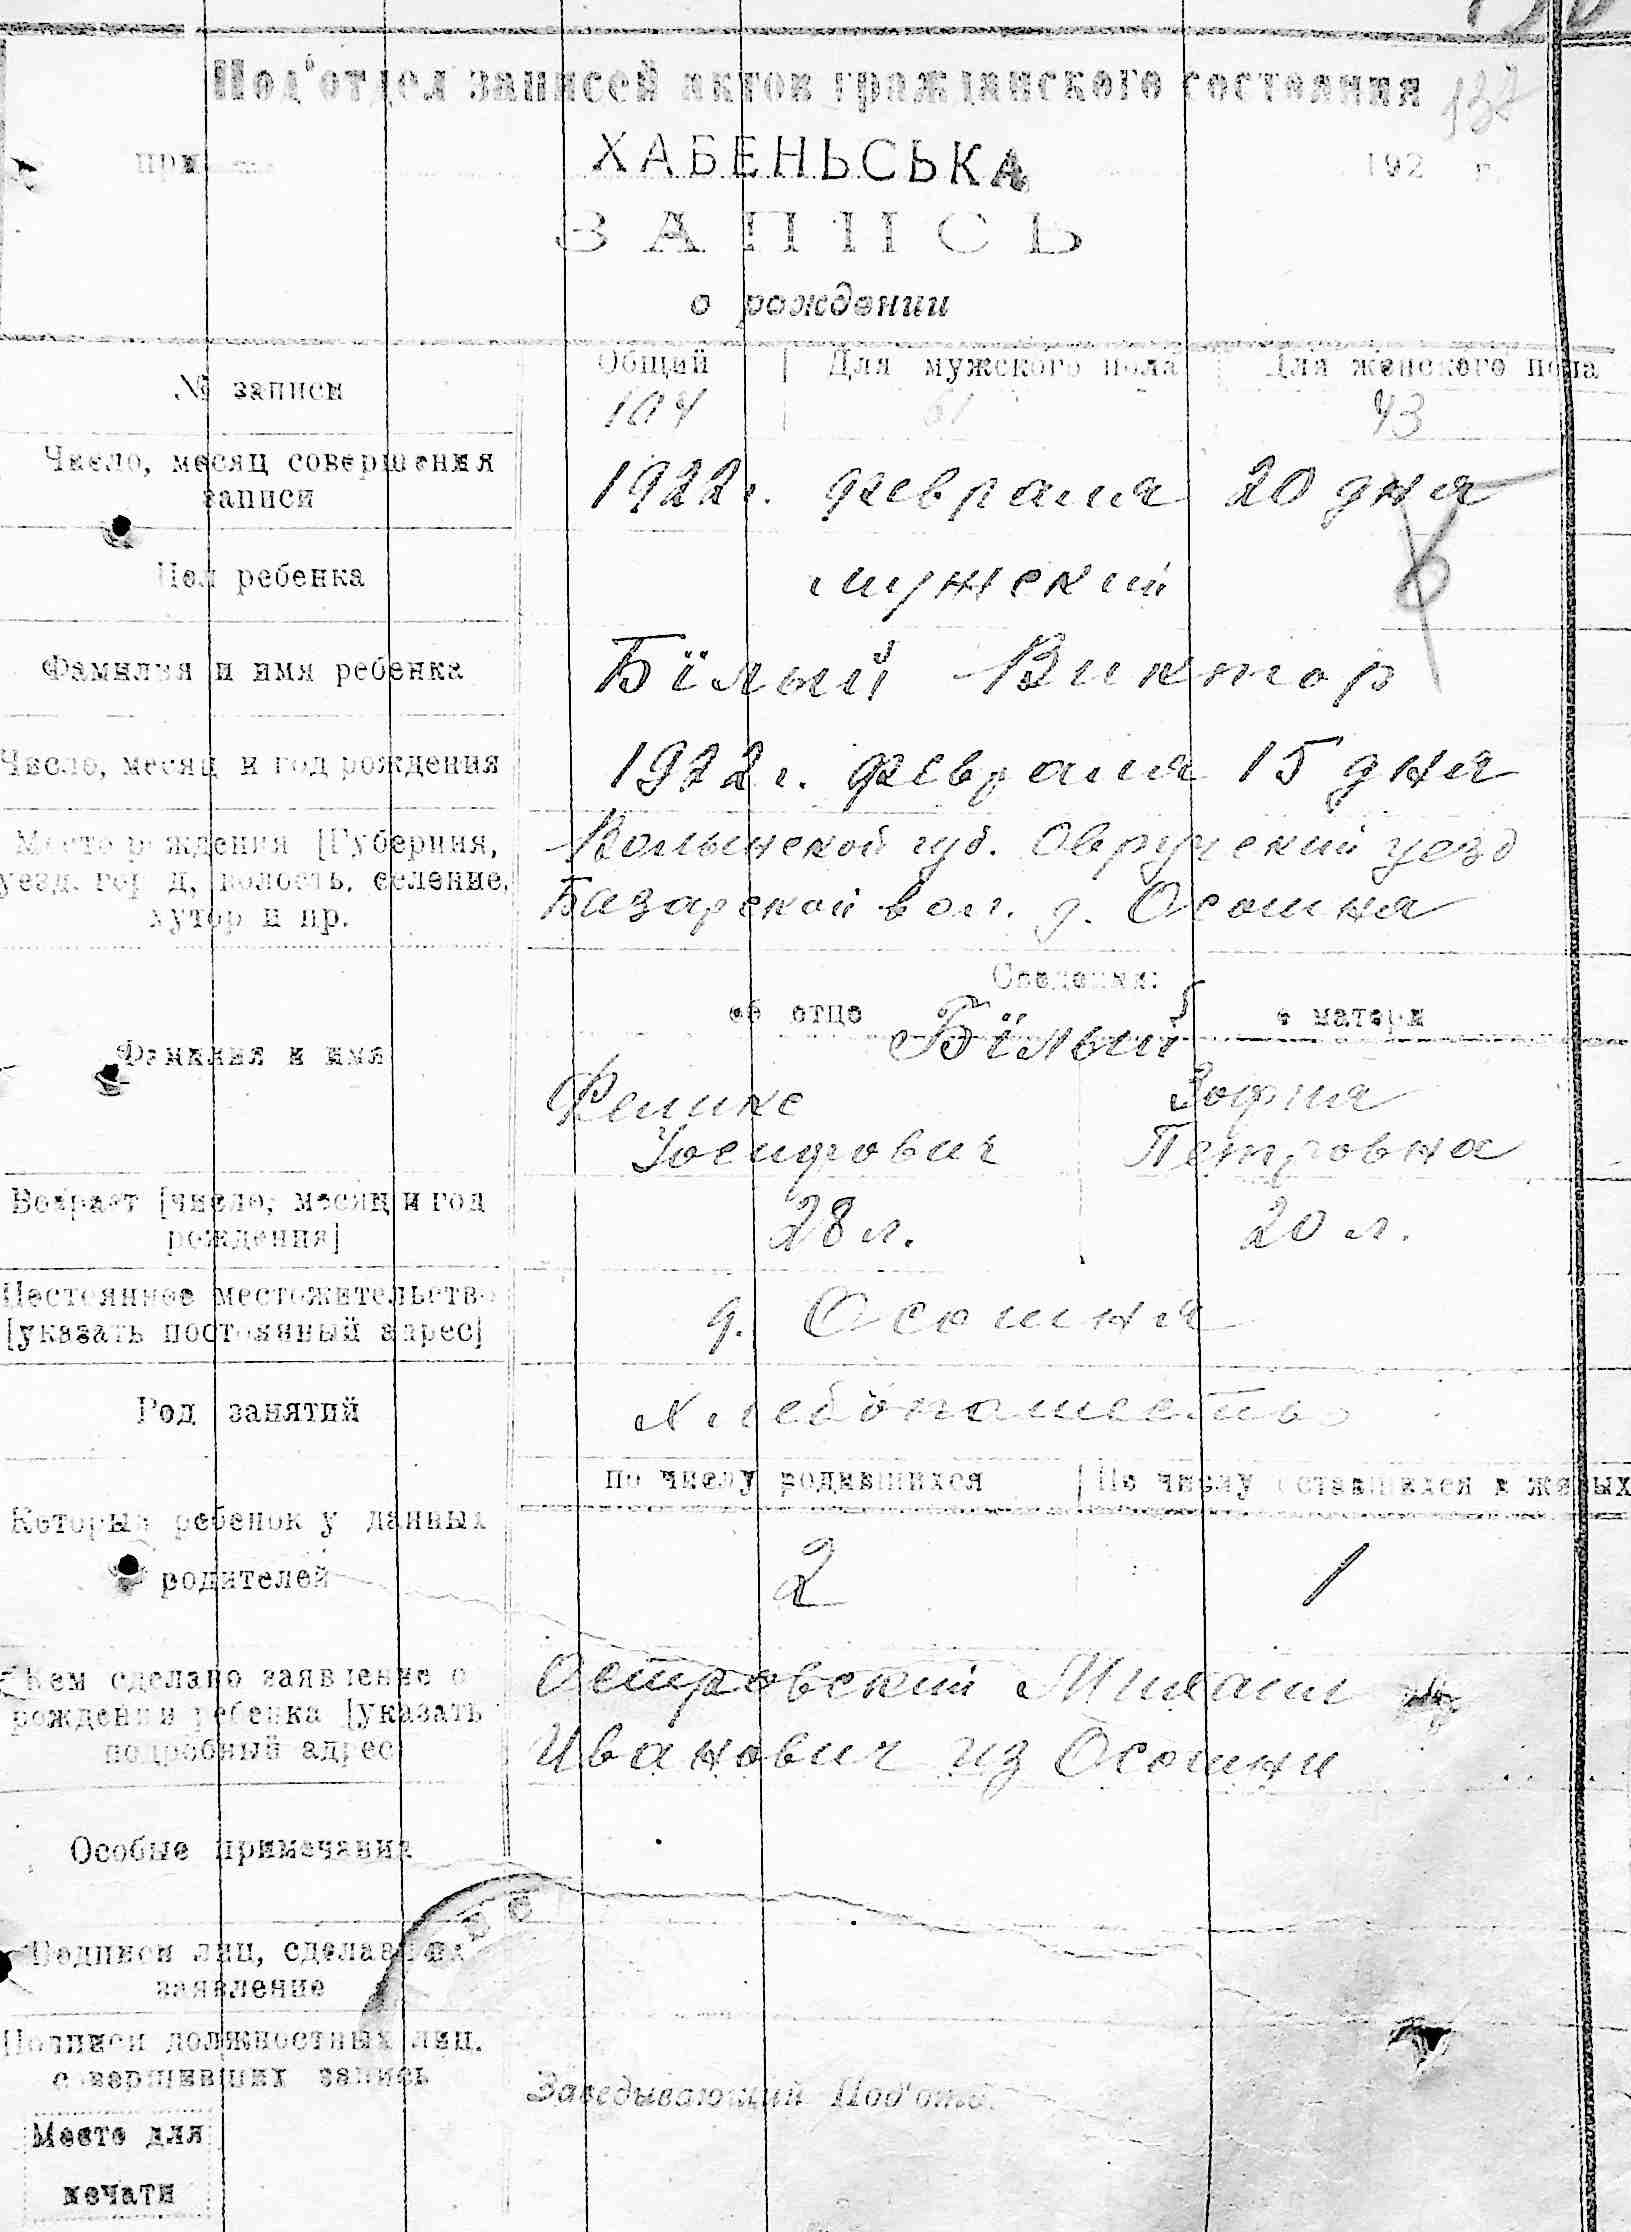 Под'отдел записей актов гражданского состояния
137
при ХАБЕНЬСЬКА 192 г.
ЗАПИСЬ
о рождении
№ записи
Общий Для мужского пола Для женского пола
104 61 43
Число, месяц совершения записи
1922 г. февраля 20 дня
Пол ребенка
мужский
Фамилия и имя ребенка
Бїлый Виктор
Число, месяц и год рождения
1922 г. февраля 15 дня
Место рождения [Губерния,
уезд, город, волость, селение,
хутор и пр.
Волынской губ. Овручский уезд
Базарской вол. д. Осошня
Сведения:
об отце Бїлый о матери
Фамилия и имя
Феликс Зофия
Иосифович Петровна
Возраст [число, месяц и год
рождения]
28 л. 20 л.
Постоянное местожительство
[указать постоянный адрес]
д. Осошня
Род занятий
хлебопашество
по числу родившихся По числу оставшихся в живых
Который ребенок у данных
родителей
2 1
Кем сделано заявление о
рождении ребенка [указать
подробный адрес]
Островский Михаил
Иванович из Осошни
Особые примечания
Подписи лиц, сделавших
заявление
Подписи должностных лиц,
совершивших запись
Заведывающий Под'отд.
Место для
печати